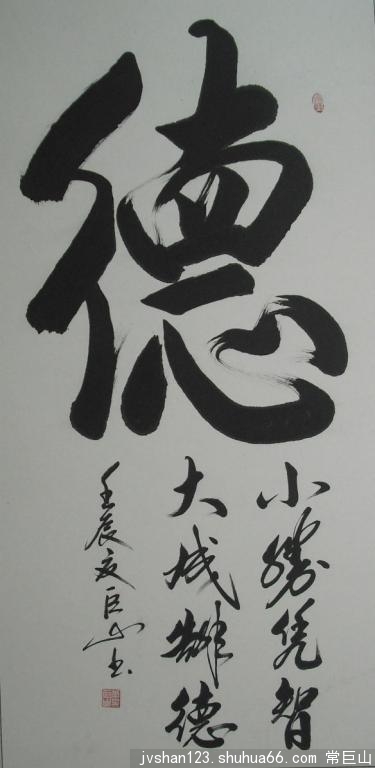 德
小勝凭智
大成靠德
壬辰夏巨山书
jvshan123.shuhua66.com 常巨山